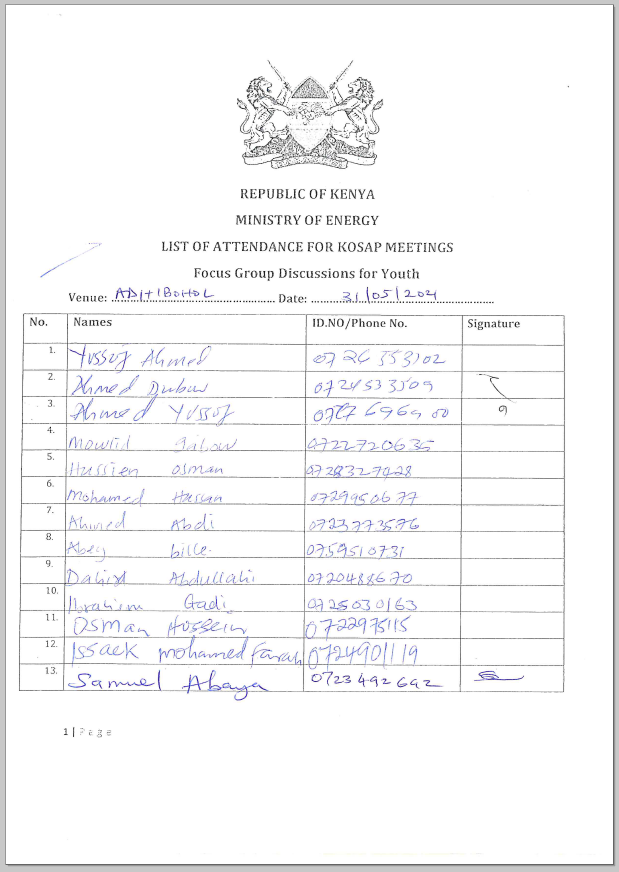 REPUBLIC OF KENYA
MINISTRY OF ENERGY
LIST OF ATTENDANCE FOR KOSAP MEETINGS
Focus Group Discussions for Youth
Venue: ADITIBOHOL Date: 31/05/2021
No. Names ID.NO/Phone No. Signature
1. Yussuf Ahmed 0726353102
2. Ahmed Dubow 0724533509
3. Ahmed Yussuf
4. Mowlid Gabow 0722720635
5. Hussien Osman 0728327428
6. Mohamed Hassan 0729950677
7. Ahmed Abdi 0723773576
8. Abey bille 0759510731
9. Dahir Abdullahi 0720488670
10. Ibrahim Gadi 0725030163
11. Osman Hussein 0722975115
12. Issaek mohamed Farah 0724901119
13. Samuel Abaya 0723492692
1 | Page